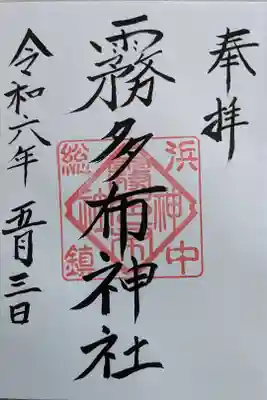 奉拝
霧多布神社
令和六年 五月三日
浜中
総鎮